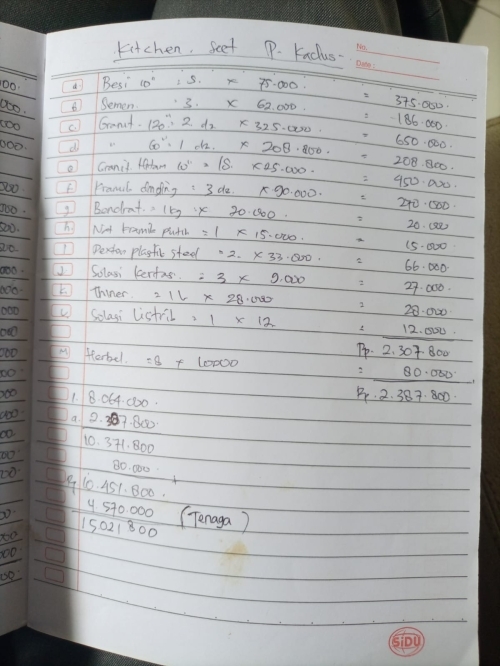 Kitchen. Seet P. Kadus-
No.
Date:
a Besi 10" = 5. x 75.000 = 375.000.
b Semen. 3. x 62.000. = 186.000
c. Granit. 120" 2 dz x 325.000 = 650.000
d " 60" 1 dz. x 208.800. = 208.800.
e Granit Hitam 10" = 18. x 25.000. = 450.000
f Kramik dinding = 3 dz. x 90.000. = 270.000
g Bondrat = 1 kg. x 20.000 = 20.000
h Nat kramik putih = 1 x 15.000. = 15.000.
i plastik steel = 2. x 33.000. = 66.000
Solasi kertas. = 3 x 9.000 = 27.000
k Thiner. = 1 L x 28.000 = 28.000
Solasi Listrik = 1 x 12 = 12.000.
Rp. 2.307.800
M = 8 x 10000 = 80.000.
Rp. 2.387.800
1. 8.064.000
2.387.800.
10.371.800
80.000. +
10.451.800.
4.570.000 (Tenaga)
15021800
SiDU